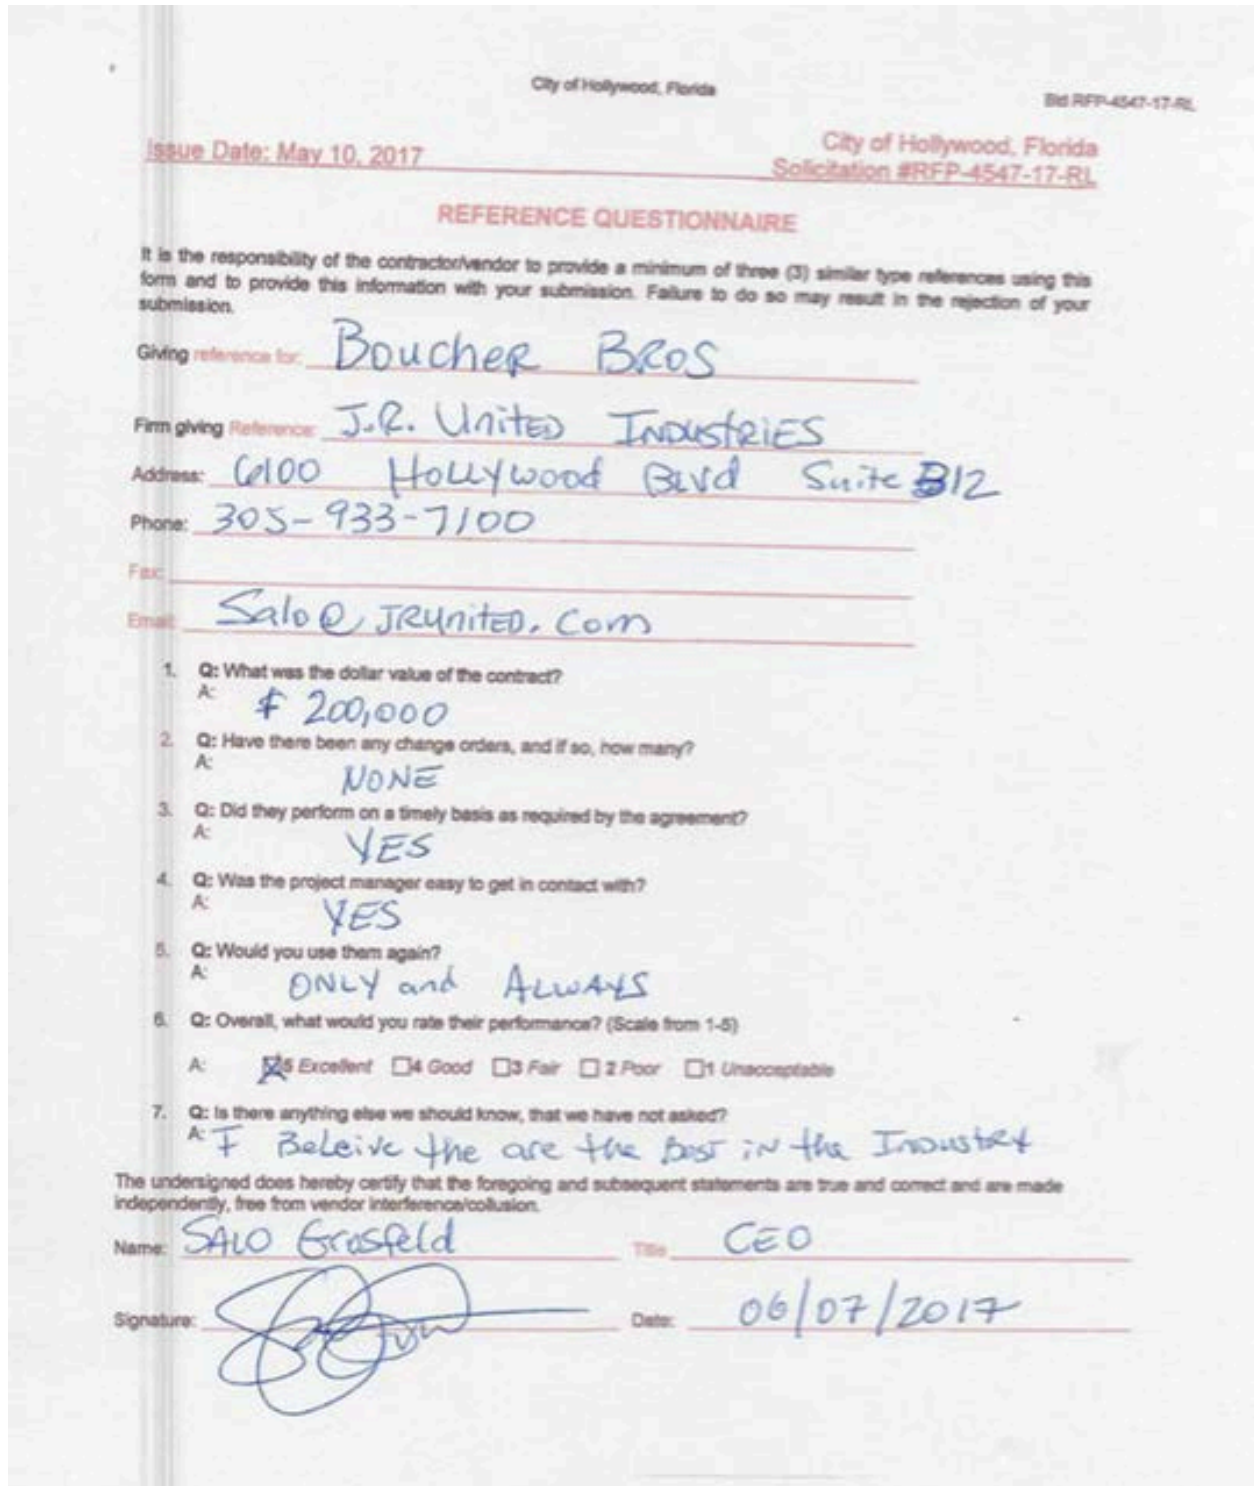 City of Hollywood, Florida
Bid RFP-4547-17-RL
Issue Date: May 10, 2017
City of Hollywood, Florida
Solicitation #RFP-4547-17-RL
REFERENCE QUESTIONNAIRE
It is the responsibility of the contractor/vendor to provide a minimum of three (3) similar type references using this
form and to provide this information with your submission. Failure to do so may result in the rejection of your
submission.
Giving reference for: Boucher Bros
Firm giving Reference: J.R. United Industries
Address: 6100 Hollywood Blvd Suite B12
Phone: 305-933-7100
Fax:
Email: Salo@JRUnited.com
1. Q: What was the dollar value of the contract?
A: $ 200,000
2. Q: Have there been any change orders, and if so, how many?
A: NONE
3. Q: Did they perform on a timely basis as required by the agreement?
A: YES
4. Q: Was the project manager easy to get in contact with?
A: YES
5. Q: Would you use them again?
A: ONLY and ALWAYS
6. Q: Overall, what would you rate their performance? (Scale from 1-5)
A: ☒5 Excellent ☐4 Good ☐3 Fair ☐2 Poor ☐1 Unacceptable
7. Q: Is there anything else we should know, that we have not asked?
A: I Beleive the are the Best in the Industry
The undersigned does hereby certify that the foregoing and subsequent statements are true and correct and are made
independently, free from vendor interference/collusion.
Name: SALO Grosfeld Title CEO
Signature: Date: 06/07/2017